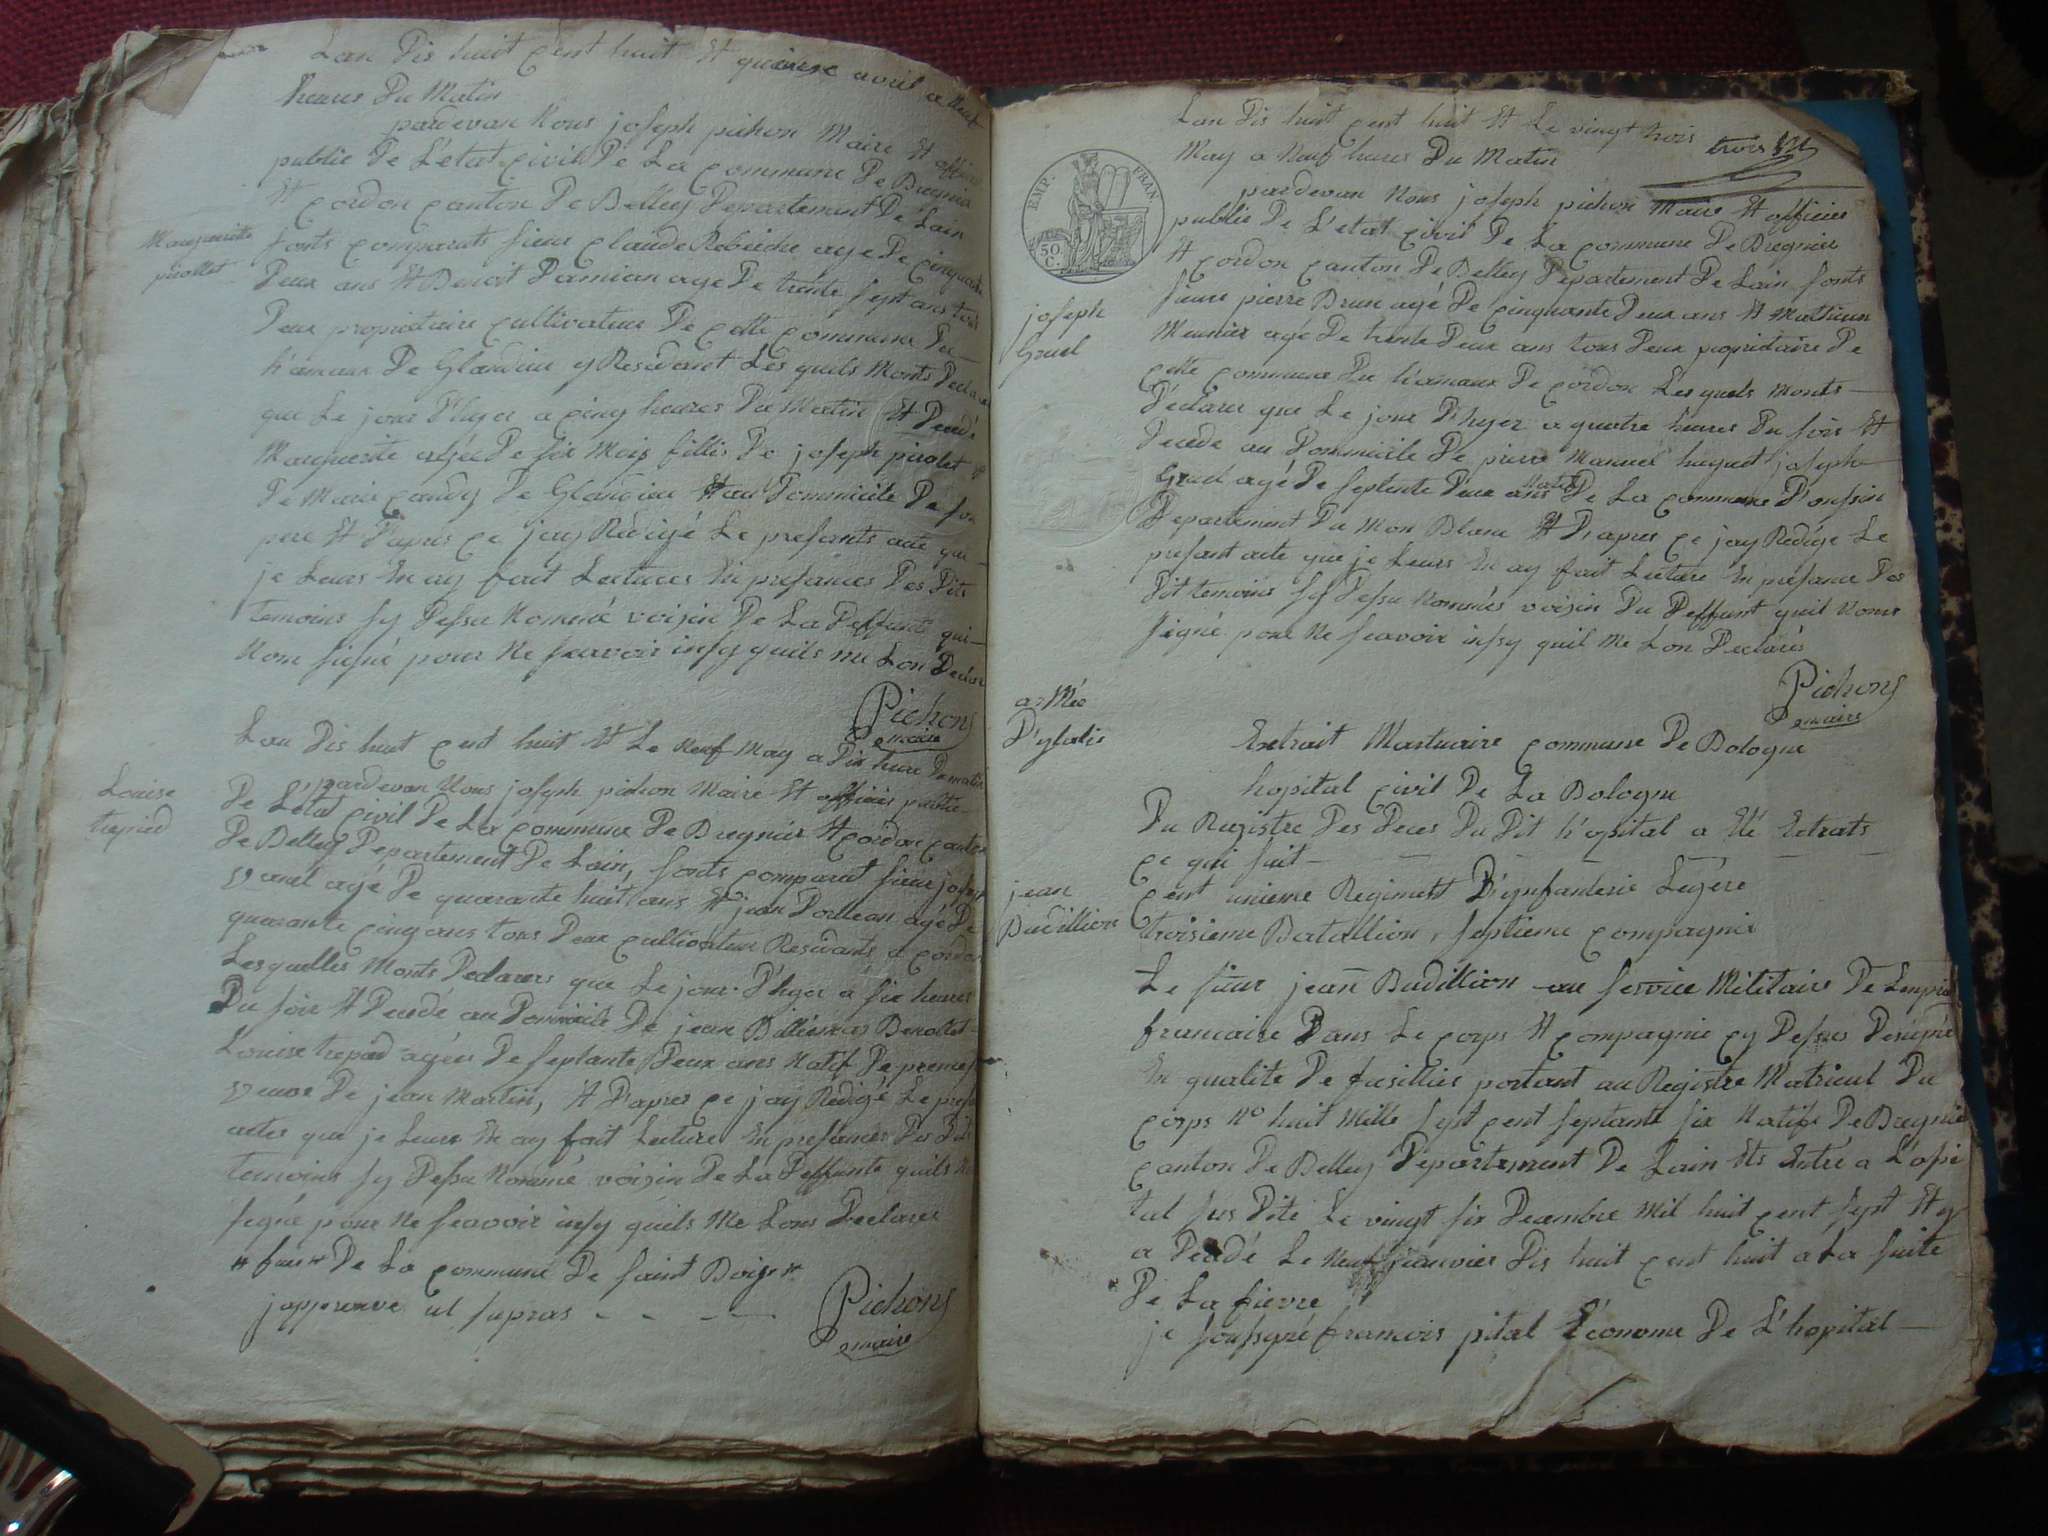 Lan Dis huit cent huit Et quinze avril a Neuf
heures Du Matin
pardevan Nous joseph pichon Maire Et officier
public De L'état civil De La commune De Bregnié
Et cordon canton De Belley Departement De Lain
Marguerite
pirollet
sonts comparuts sieur claude Robeiche age De cinquante
Deux ans Et Benoit Damian age De trente sept ans tous
Deux propriétaire cultivateur De cette commune Du
h'amaux De Glandieu y Residant Les quels Monts Declaré
que Le jour D'hyer a cinq heures Du Matin Et Decedé
Marguerite agée De six Mois fillis De joseph pirolet Et
De Marie candy De Glandieu Et au Dommicile De son
pere Et D'apres ce jay Rédigé Le presents acte que
je Leurs En ay fait Lectures En presances Des Dits
temoins sy Dessu Nommé voisin De La Deffunte qui
Nom signé pour Ne scavoir insy quils me Lon Declaré
Pichon
maire
Louise
trepied
Lan Dis huit cent huit Et Le Neuf May a Dix heure Du matin
pardevan Nous joseph pichon Maire Et officier public
De L'état civil De La commune De Bregnié Et cordon canton
De Belley Departement De Lain, sonts comparut sieur joseph
agé De quarante huit ans Et jean agé De
quarante cinq ans tous Deux cultivateur Residants a cordon
Lesquelles Monts Declarer que Le jour D'hyer a six heures
Du soir Et Decedé au Dommicile De jean Billiemas Benottet
Louise trepied agées De septante Deux ans Natif De
veuve De jean Martin, Et D'apres ce jay Rédigé Le presant
actes que je Leurs En ay fait Lecture En presances Des Dits
temoins sy Dessu Nommé voisin De La Deffunte quils
signé pour Ne scavoir insy quils Me Lons Declarer
De La commune De saint
japprouve ut supras
Pichon
maire
Lan Dis huit cent huit Et Le vingt trois
trois
May a Neuf heures Du Matin
EMP. FRAN.
50 C.
pardevan Nous joseph pichon Maire Et officier
public De L'etat civil De La commune De Bregnié
Et cordon canton De Belley Departement De Lain sonts
joseph
Gruel
sieure pierre Brun agé De cinquante Deux ans Et Mathieux
Meunier age De trente Deux ans tous Deux propriétaire De
cette commune Du h'amaux De cordon Les quels monts
Déclarer que Le jour D'hyer a quatre heures Du soir Et
Decede au Dommicile De pierre Manuel huguet joseph
Gruel agé De septente Deux ans Natif De La commune D'oussin
Departement Du Mon Blanc Et D'apres ce jay Rédigé Le
presant acte que je Leurs En ay fait Lecture En presance Des
Dit temoins sy Dessu Nommés voisin Du Deffunt quil Noms
signé pour Ne scavoir insy quil Me Lon Declarés
Pichon
maire
armée
D'ytalie
Extrait Mortuaire commune De Bologne
hopital civil De La Bologne
Du Registre Des Deces Du Dit h'opital a Eté Extrats
ce qui suit
jean
Budillion
cent unieme Regiment D'ynfanterie Legere
troisieme Batallion, septieme compagnie
Le sieur jean Budillion au service Militaire De Lenpire
francaise Dans Le corps Et compagnie cy Dessus Designé
En qualité De fusillier portant au Registre Matricul Du
corps No huit Mille sept cent septante six Natif De Bregnié
canton De Belley Departement De Lain Ets Entré a L'opi
tal sus Dite Le vingt six Decembre Mil huit cent sept Et y
a Decedé Le Neuf janvier Dis huit cent huit a La suite
De La fievre
je soussigné francois pital L'économe De L'hopital